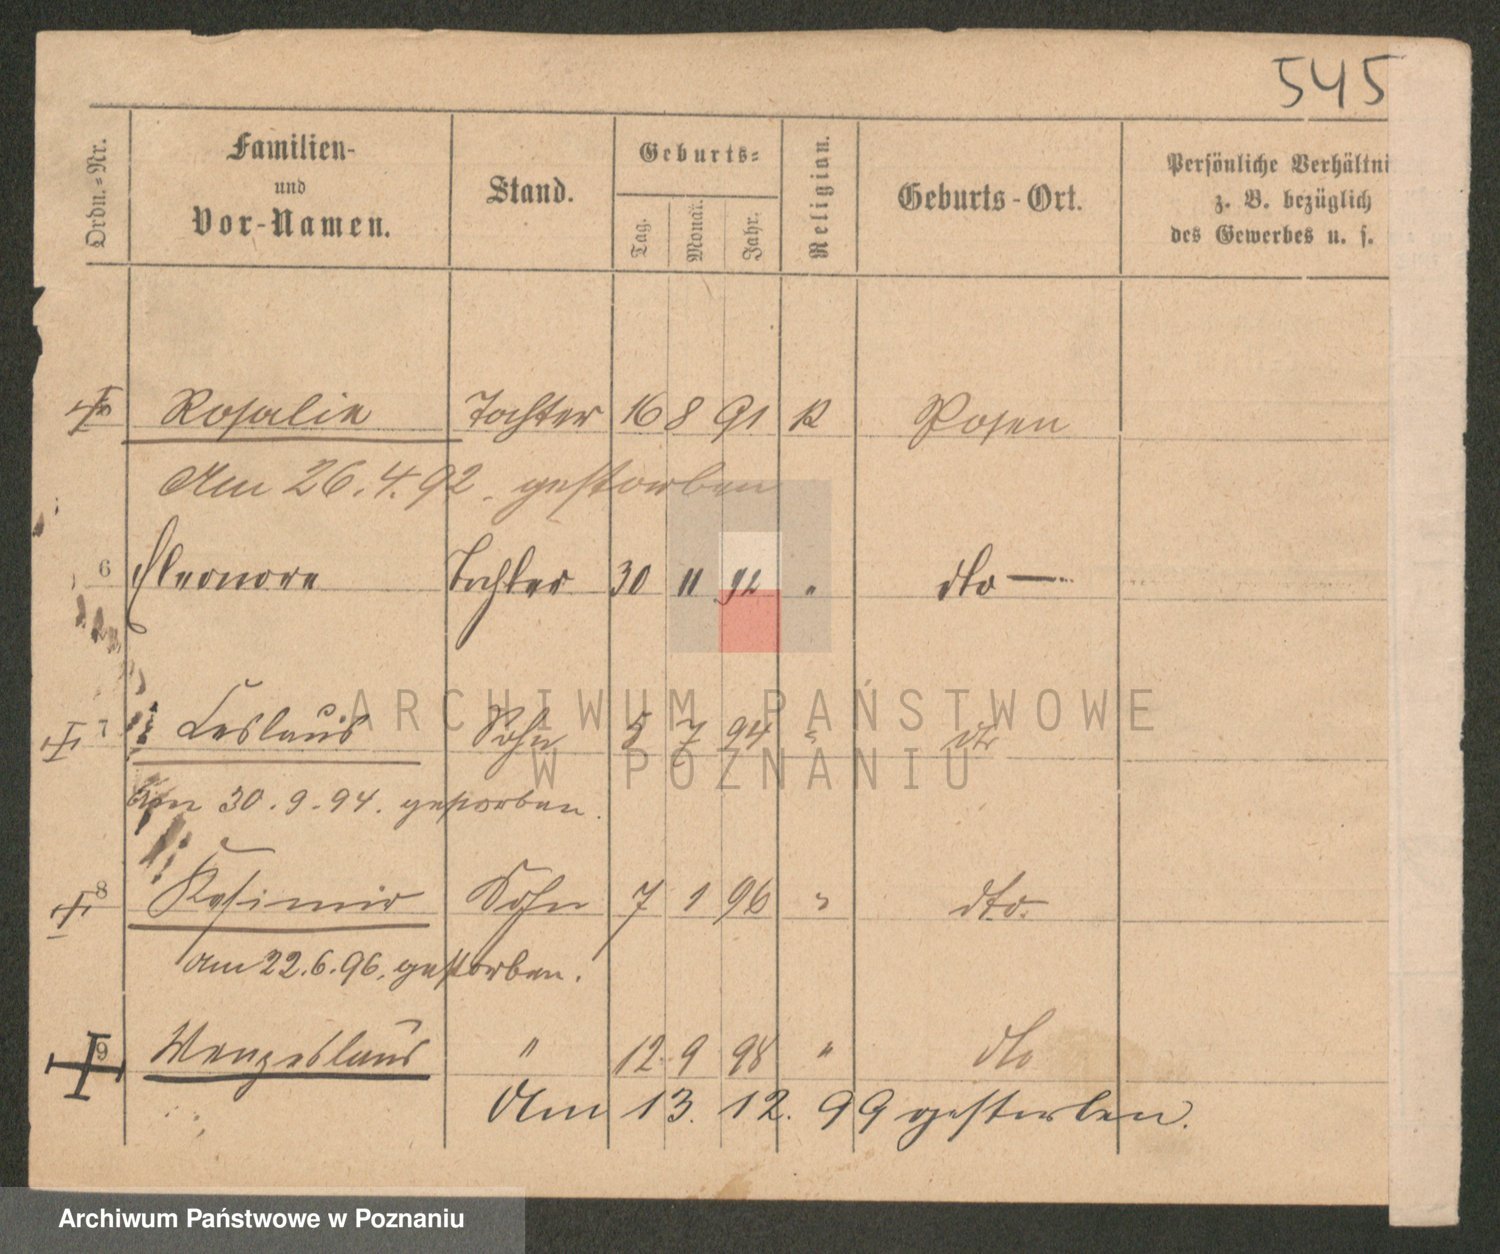 545
Ordn.=Nr.
Familien-
und
Vor-Namen.
Stand.
Geburts=
Tag.
Monat.
Jahr.
Religion.
Geburts-Ort.
Persönliche Verhältni
z. B. bezüglich
des Gewerbes u. s.
Rosalie Tochter 16 8 91 K Posen
Am 26.4.92. gestorben
6 Eleonore Tochter 30 11 92 " dto —
7 Leslaus Sohn 5 7 94 " dto
Am 30.9.94. gestorben.
8 Kasimir Sohn 7 1 96 " dto.
Am 22.6.96. gestorben.
9 Wenzeslaus " 12 9 98 " dto
Am 13. 12. 99 gestorben.
ARCHIWUM PAŃSTWOWE
W POZNANIU
Archiwum Państwowe w Poznaniu